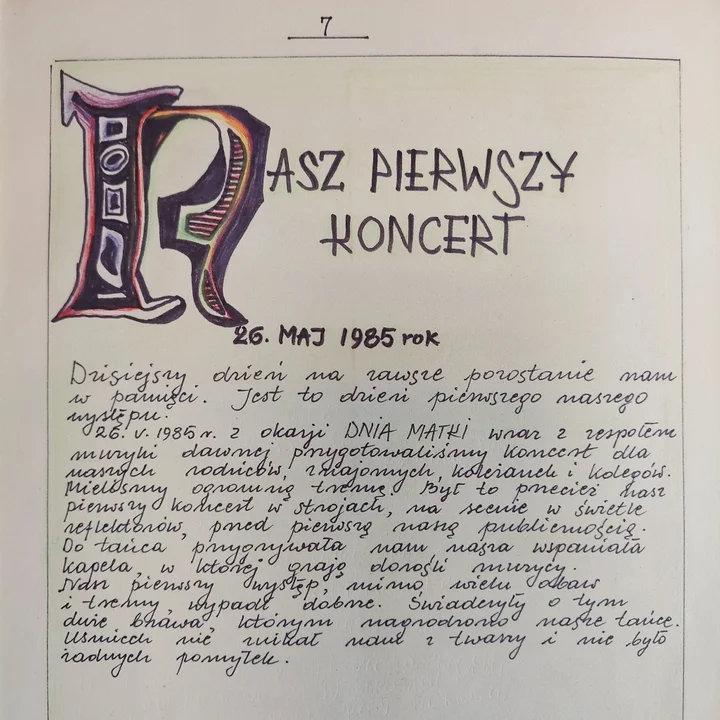 7
NASZ PIERWSZY
KONCERT
26. MAJ 1985 rok
Dzisiejszy dzień na zawsze pozostanie nam
w pamięci. Jest to dzień pierwszego naszego
występu.
26. V. 1985 r. z okazji DNIA MATKI wraz z zespołem
muzyki dawnej przygotowaliśmy koncert dla
naszych rodziców, znajomych, koleżanek i kolegów.
Mieliśmy ogromną tremę. Był to przecież nasz
pierwszy koncert w strojach, na scenie w świetle
reflektorów, przed pierwszą naszą publicznością.
Do tańca przygrywała nam nasza wspaniała
kapela, w której grają dorośli muzycy.
Nasz pierwszy występ, mimo wielu obaw
i tremy, wypadł dobrze. Świadczyły o tym
duże brawa, którym nagrodzono nasze tańce.
Uśmiech nie znikał nam z twarzy i nie było
żadnych pomyłek.